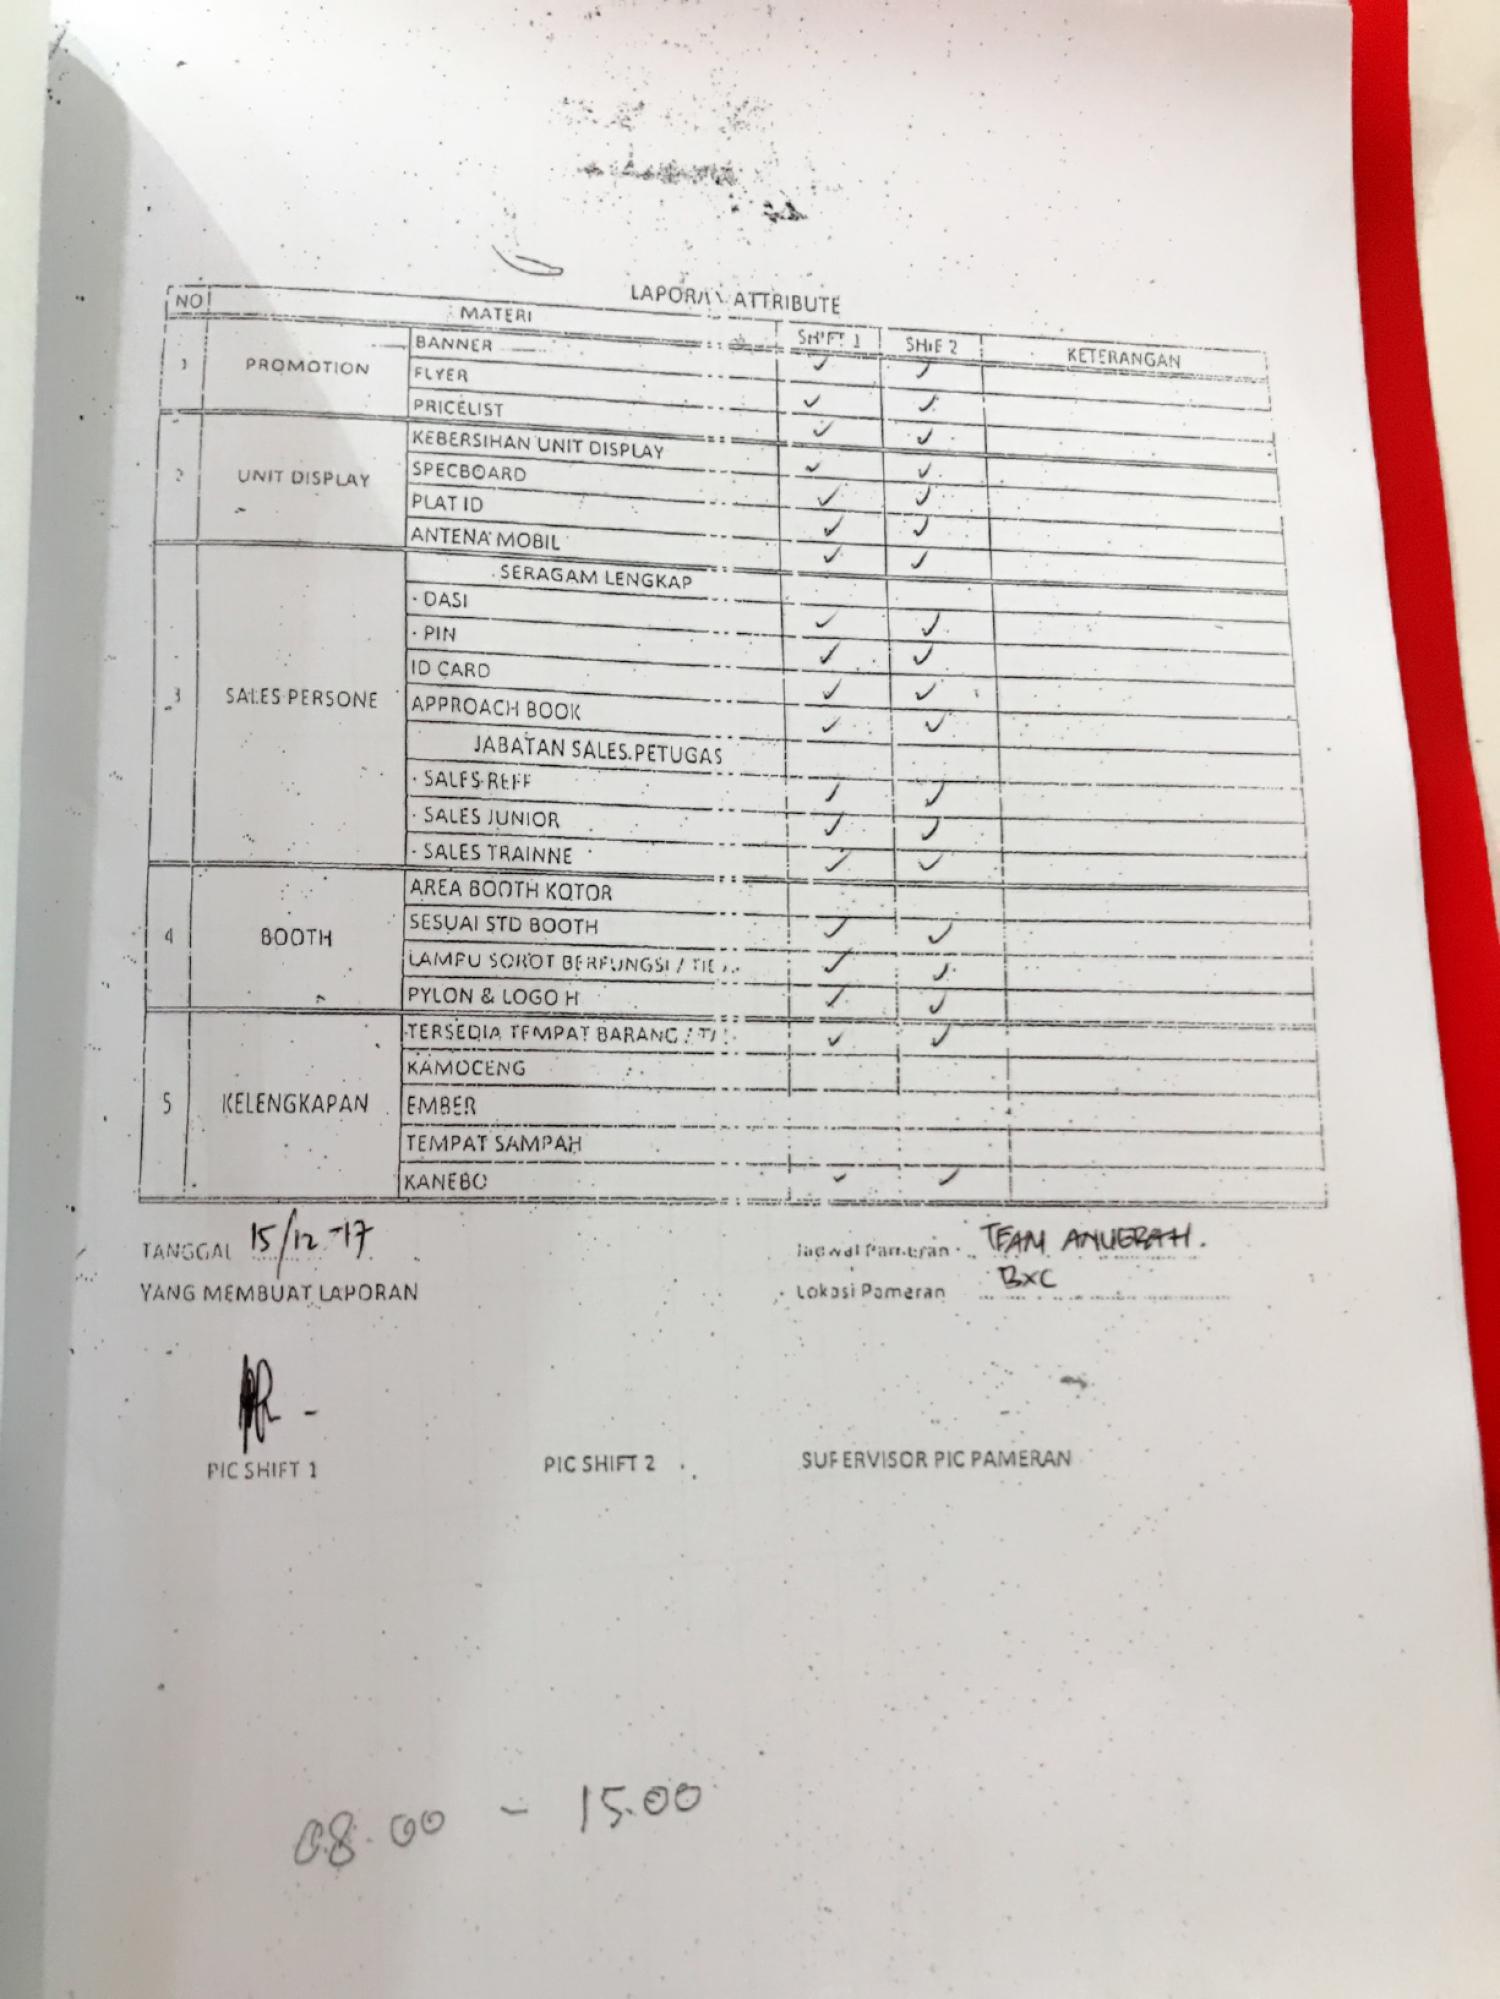 LAPORAN ATTRIBUTE
NO MATERI SHIFT 1 SHIF 2 KETERANGAN
1 PROMOTION BANNER ✓ ✓
FLYER ✓ ✓
PRICELIST ✓ ✓
2 UNIT DISPLAY KEBERSIHAN UNIT DISPLAY ✓ ✓
SPECBOARD ✓ ✓
PLAT ID ✓ ✓
ANTENA MOBIL ✓ ✓
3 SALES PERSONE SERAGAM LENGKAP
- DASI ✓ ✓
- PIN ✓ ✓
ID CARD ✓ ✓
APPROACH BOOK ✓ ✓
JABATAN SALES PETUGAS
- SALES REFF ✓ ✓
- SALES JUNIOR ✓ ✓
- SALES TRAINNE ✓ ✓
4 BOOTH AREA BOOTH KOTOR
SESUAI STD BOOTH ✓ ✓
LAMPU SOROT BERFUNGSI / ✓ ✓
PYLON & LOGO H ✓ ✓
5 KELENGKAPAN TERSEDIA TEMPAT BARANG / ✓ ✓
KAMOCENG
EMBER
TEMPAT SAMPAH
KANEBO ✓ ✓
TANGGAL 15/12-17 Jadwal Pameran TEAM ANUGRAH.
YANG MEMBUAT LAPORAN Lokasi Pameran BXC
PIC SHIFT 1 PIC SHIFT 2 SUPERVISOR PIC PAMERAN
08.00 - 15.00